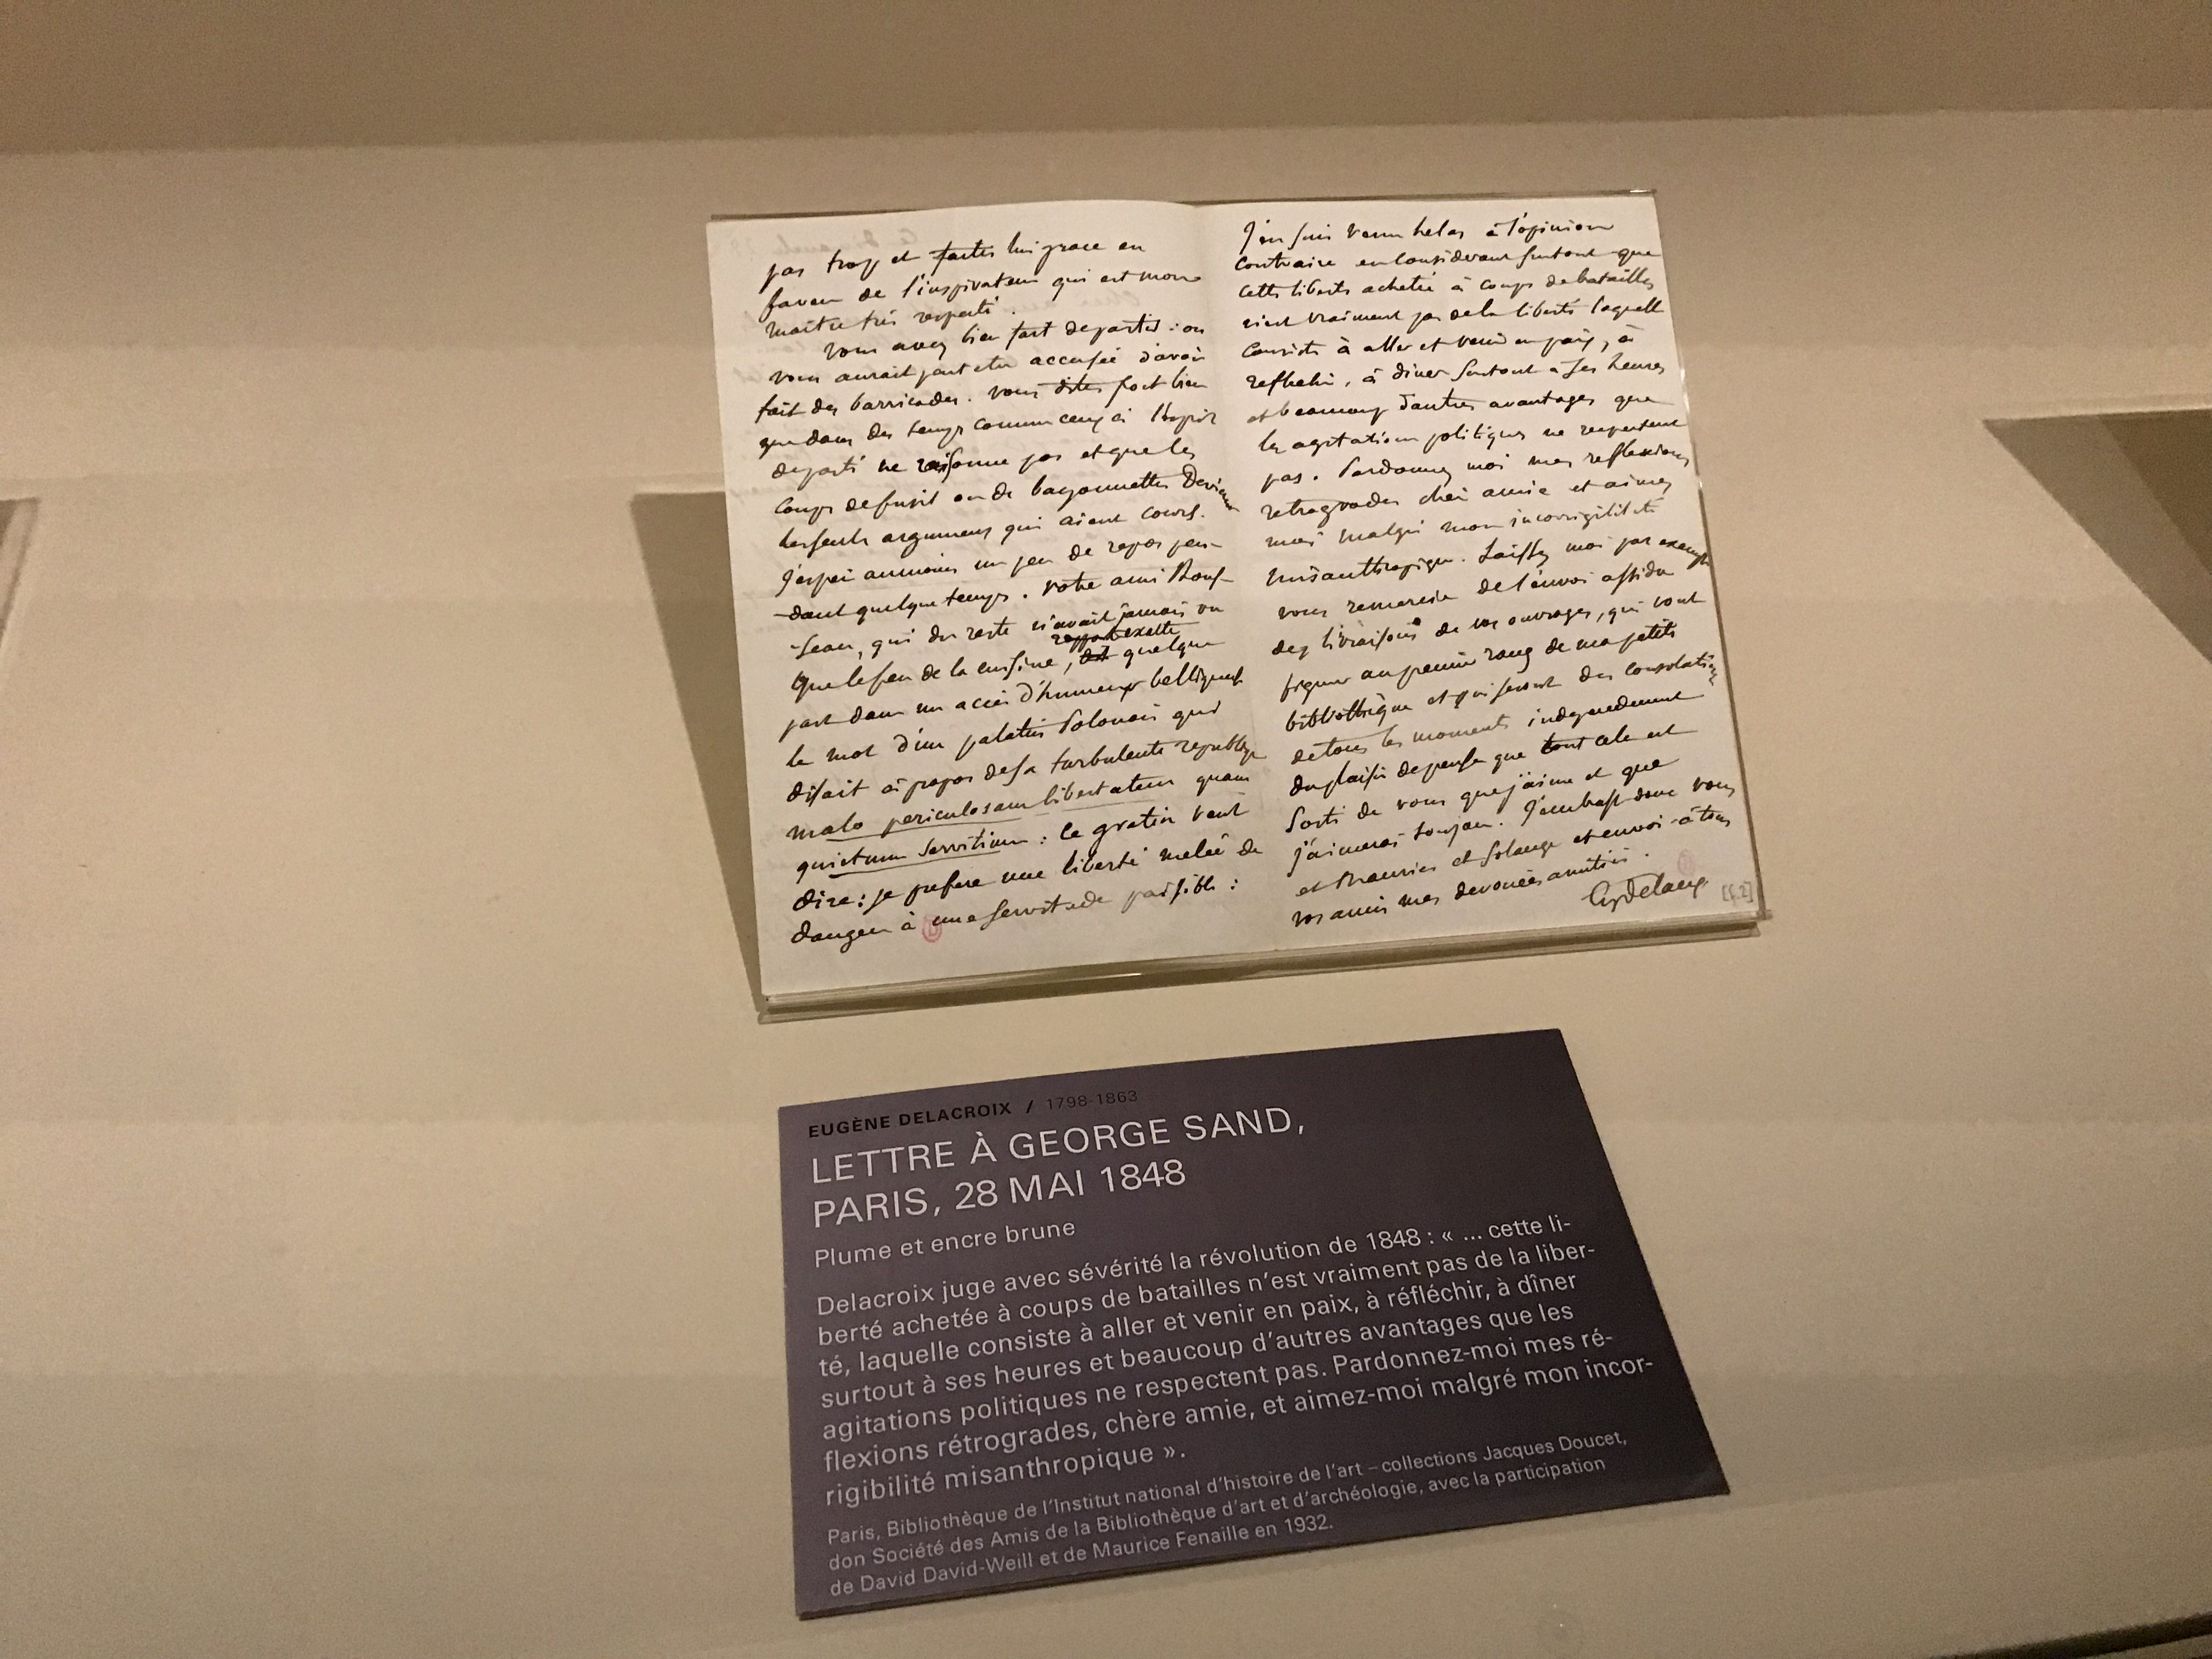 pas trop et faites lui grace en
faveur de l'inspirateur qui est mon
maitre très respecté.
vous avez bien fait de partir : on
vous aurait peut etre accusée d'avoir
fait des barricades. Vous dites fort bien
que dans des temps comme ceux ci l'esprit
de parti ne raisonne pas et que les
coups de fusil ou de bayonnettes
les seuls argumens qui aient cours.
J'espere aumoins un peu de repos pen-
dant quelque temps. Votre ami Rous-
seau, qui du reste n'avait jamais vu
que le feu de la cuisine, quelque
part dans un accès d'humeur belliqueuse
le mot d'un palatin Polonais qui
disait à propos de sa turbulente republique
malo periculosam libertatem quam
quietum servitium : ce gratin veut
dire : je prefere une liberté melée de
danger à une servitude paisible :
J'en suis venu helas à l'opinion
contraire en considerant surtout que
cette liberté achetée à coups de batailles
n'est vraiment pas de la liberté laquelle
consiste à aller et venir en paix, à
reflechir, à diner surtout à ses heures
et beaucoup d'autres avantages que
les agitations politiques ne respectent
pas. Pardonnez moi mes reflexions
retrogrades chere amie et aimez
moi malgré mon incorrigibilité
misanthropique. Laissez moi par exemple
vous remercier de l'envoi assidu
des livraisons de vos ouvrages, qui vont
figurer au premier rang de ma petite
bibliothèque et qui seront des consolations
de tous les moments independemment
du plaisir de penser que tout cela est
sorti de vous que j'aime et que
j'aimerai toujours. J'embrasse donc vous
et Maurice et Solange et envoi à tous
vos amis mes devouées amitiés.
EugDelacroix
[f.2]
EUGÈNE DELACROIX / 1798-1863
LETTRE À GEORGE SAND,
PARIS, 28 MAI 1848
Plume et encre brune
Delacroix juge avec sévérité la révolution de 1848 : « ... cette li-
berté achetée à coups de batailles n'est vraiment pas de la liber-
té, laquelle consiste à aller et venir en paix, à réfléchir, à dîner
surtout à ses heures et beaucoup d'autres avantages que les
agitations politiques ne respectent pas. Pardonnez-moi mes ré-
flexions rétrogrades, chère amie, et aimez-moi malgré mon incor-
rigibilité misanthropique ».
Paris, Bibliothèque de l'Institut national d'histoire de l'art – collections Jacques Doucet,
don Société des Amis de la Bibliothèque d'art et d'archéologie, avec la participation
de David David-Weill et de Maurice Fenaille en 1932.